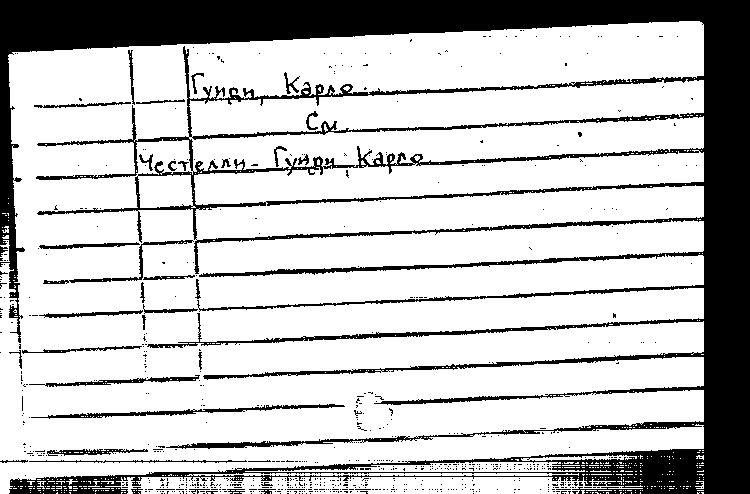 Гуиди, Карло.
См.
Честелли-Гуиди, Карло